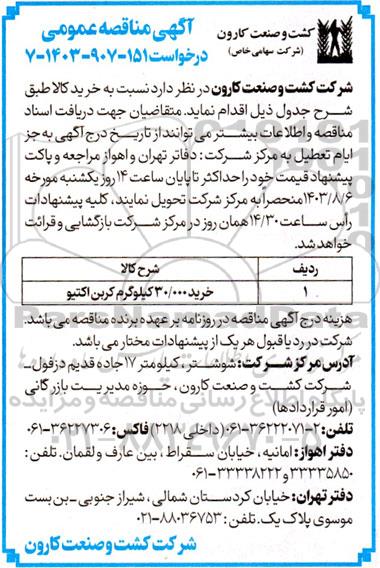 کشت و صنعت کارون
(شرکت سهامی خاص)
آگهی مناقصه عمومی
درخواست ۱۵۱-۹۰۷-۱۴۰۳-۷
شرکت کشت و صنعت کارون در نظر دارد نسبت به خرید کالا طبق
شرح جدول ذیل اقدام نماید. متقاضیان جهت دریافت اسناد
مناقصه و اطلاعات بیشتر می توانند از تاریخ درج آگهی به جز
ایام تعطیل به مرکز شرکت: دفاتر تهران و اهواز مراجعه و پاکت
پیشنهاد قیمت خود را حداکثر تا پایان ساعت ۱۴ روز یکشنبه مورخه
۱۴۰۳/۸/۶ منحصراً به مرکز شرکت تحویل نمایند، کلیه پیشنهادات
رأس ساعت ۱۴/۳۰ همان روز در مرکز شرکت بازگشایی و قرائت
خواهد شد.
ردیف شرح کالا
۱ خرید ۳۰/۰۰۰ کیلوگرم کربن اکتیو
هزینه درج آگهی مناقصه در روزنامه بر عهده برنده مناقصه می باشد.
شرکت در رد یا قبول هر یک از پیشنهادات مختار می باشد.
آدرس مرکز شرکت: شوشتر، کیلومتر ۱۷ جاده قدیم دزفول-
شرکت کشت و صنعت کارون، حوزه مدیریت بازرگانی
(امور قراردادها)
تلفن: ۲-۳۶۲۲۲۰۷۱-۰۶۱ (داخلی ۲۲۱۸) فاکس: ۳۶۲۲۷۳۰۶-۰۶۱
دفتر اهواز: امانیه، خیابان سقراط، بین عارف و لقمان. تلفن:
۳۳۳۳۵۸۵۰ و ۳۳۳۳۸۲۲۲-۰۶۱
دفتر تهران: خیابان کردستان شمالی، شیراز جنوبی-بن بست
موسوی پلاک یک. تلفن: ۸۸۰۳۶۷۵۳-۰۲۱
شرکت کشت و صنعت کارون